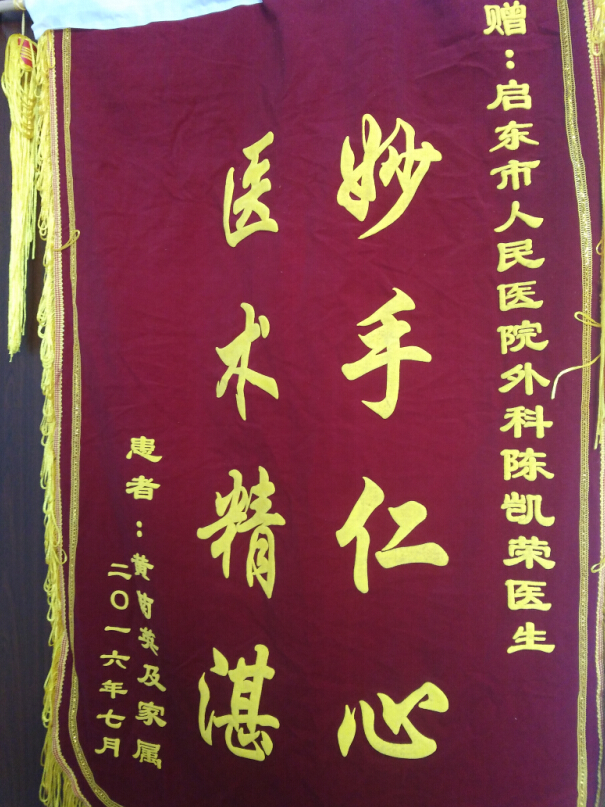 赠：启东市人民医院外科陈凯荣医生
妙手仁心
医术精湛
患者：黄肖英及家属
二〇一六年七月